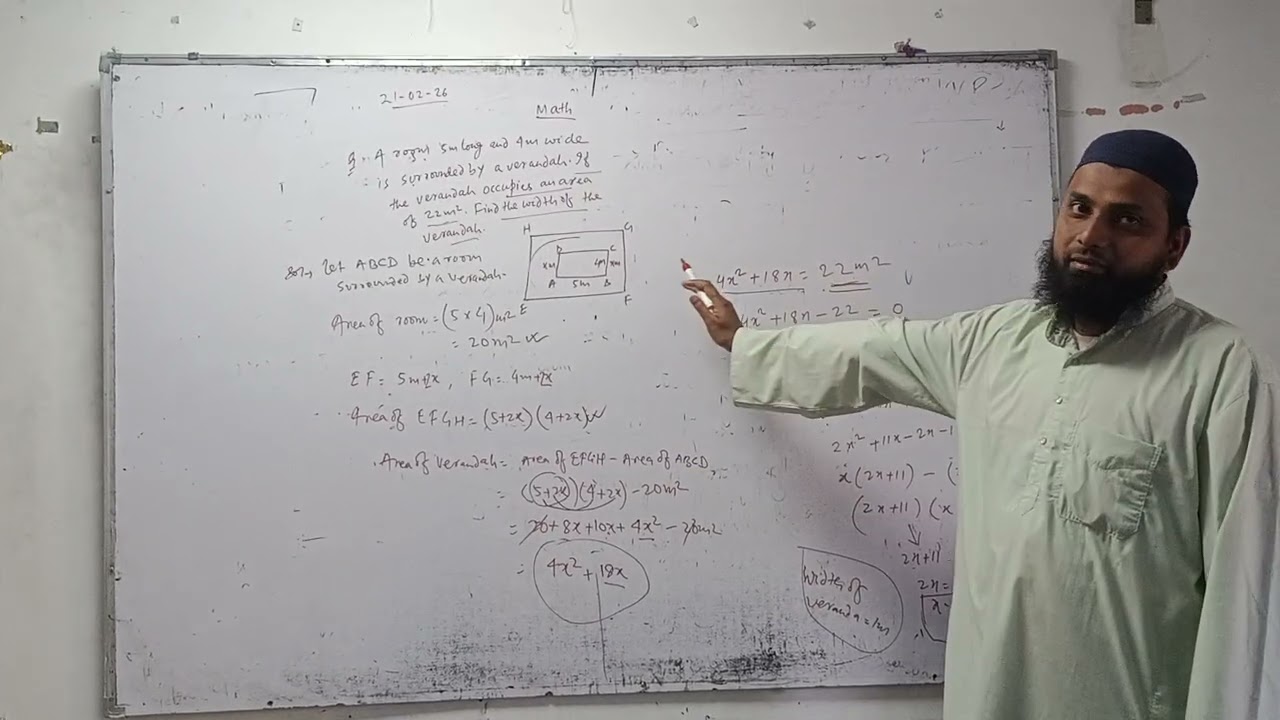 21-02-26
Math
Q. A room 5m long and 4m wide
is surrounded by a verandah. If
the verandah occupies an area
of 22m². Find the width of the
verandah.
H G
D C
xm 4m xm
A 5m B
E F
Soln, Let ABCD be a room
surrounded by a verandah.
Area of room = (5×4)m²
= 20m²
EF = 5m+2x, FG = 4m+2x
Area of EFGH = (5+2x)(4+2x)
Area of verandah = Area of EFGH - Area of ABCD
= (5+2x)(4+2x) - 20m²
= 20+8x+10x+4x² - 20m²
= 4x² + 18x
4x²+18x = 22m²
4x²+18x-22 = 0
2x²+11x-2x-1
x(2x+11) - (
(2x+11)(x
2x+11
2x=
x=
Width of
veranda = 1m